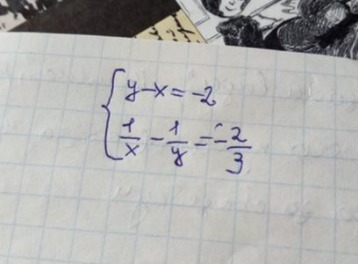 y-x=-2
1/x - 1/y = -2/3